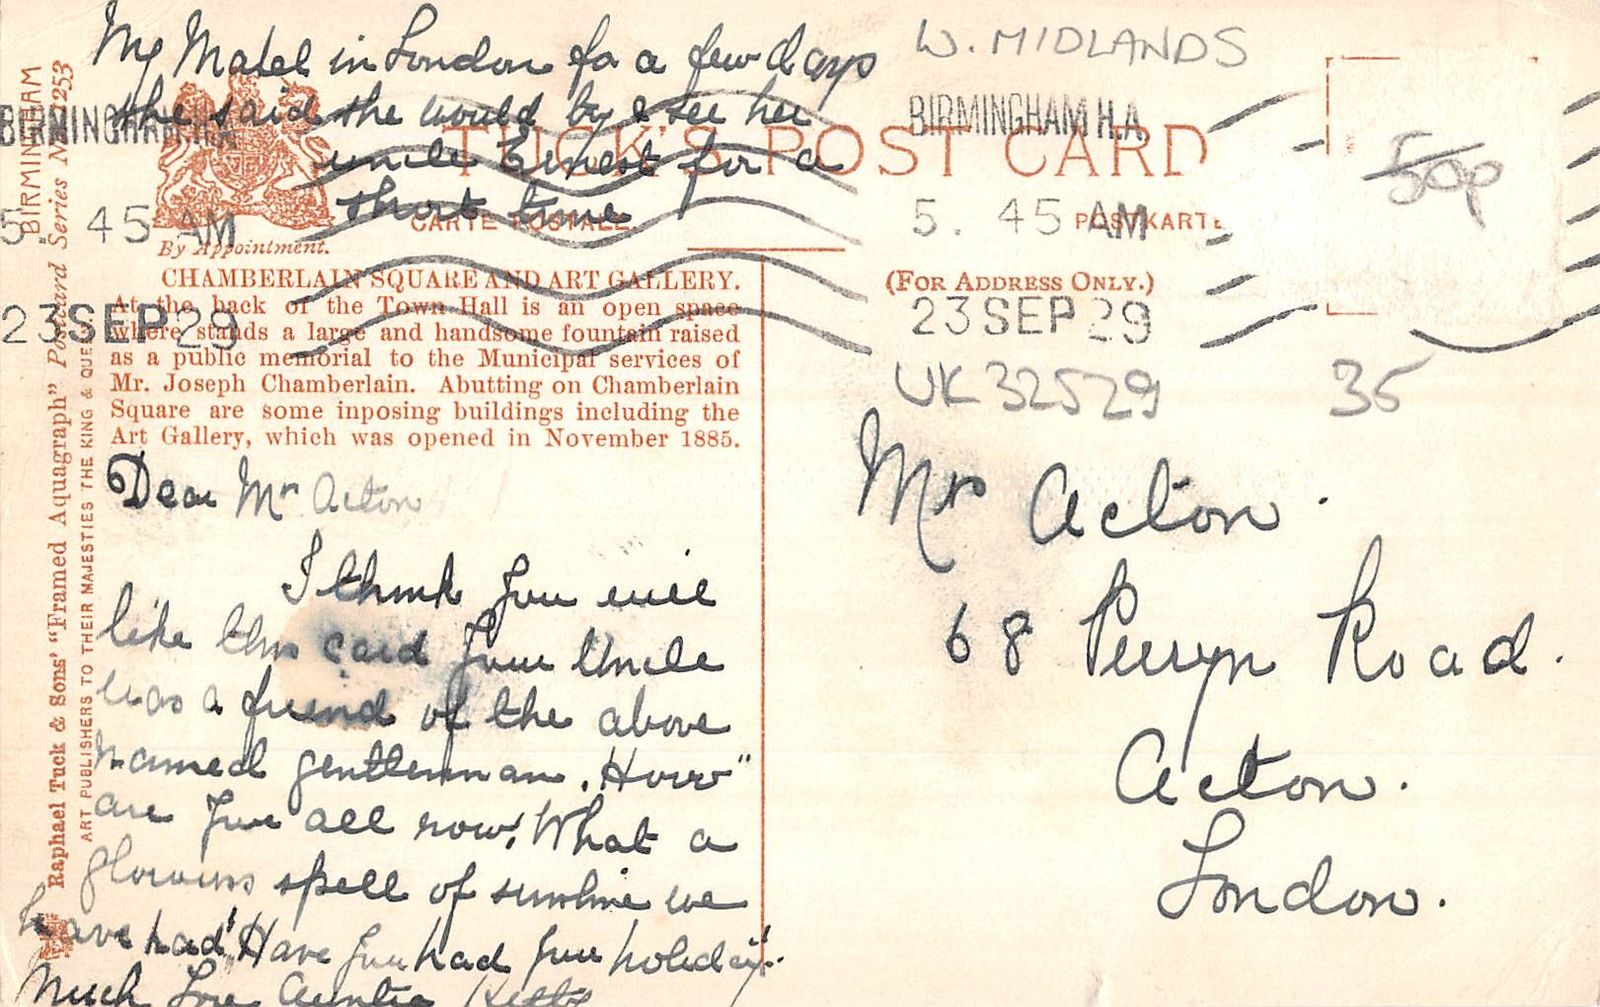 My Mabel in London fo a few days
she said she would try & see her
uncle Ernest for a
short time
W. MIDLANDS
BIRMINGHAM H.A.
5. 45 AM
23 SEP 29
BIRMINGHAM H.A
5. 45 AM
23 SEP 29
TUCK'S POST CARD
CARTE POSTALE
POSTKARTE
By Appointment.
(FOR ADDRESS ONLY.)
50p
UK 32529
36
CHAMBERLAIN SQUARE AND ART GALLERY.
At the back of the Town Hall is an open space
where stands a large and handsome fountain raised
as a public memorial to the Municipal services of
Mr. Joseph Chamberlain. Abutting on Chamberlain
Square are some inposing buildings including the
Art Gallery, which was opened in November 1885.
BIRMINGHAM
Raphael Tuck & Sons' "Framed Aquagraph" Postcard Series No. 1253
ART PUBLISHERS TO THEIR MAJESTIES THE KING & QUEEN
Dear Mrs Acton
I think you will
like this card your Uncle
was a friend of the above
named gentleman. How
are you all now! What a
glorious spell of sunshine we
have had! Have you had your holiday.
Much Love Auntie
Mrs Acton.
68 Perryn Road.
Acton.
London.